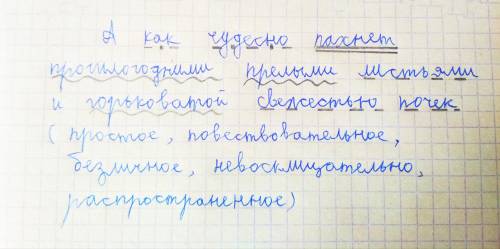 А как чудесно пахнет
прошлогодними прелыми листьями
и горьковатой свежестью почек
(простое, повествовательное,
безличное, невосклицательно,
распространенное)